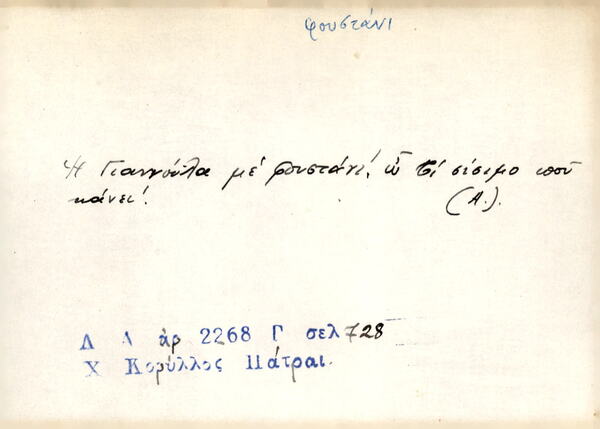 φουστάνι
Ἡ Γιαννούλα μέ φουστάνι, ὤ τί σίσιμο πού
κάνει!
(Α.).
Λ Α ἀρ 2268 Γ σελ 728
Χ Κορύλλος Πάτραι.